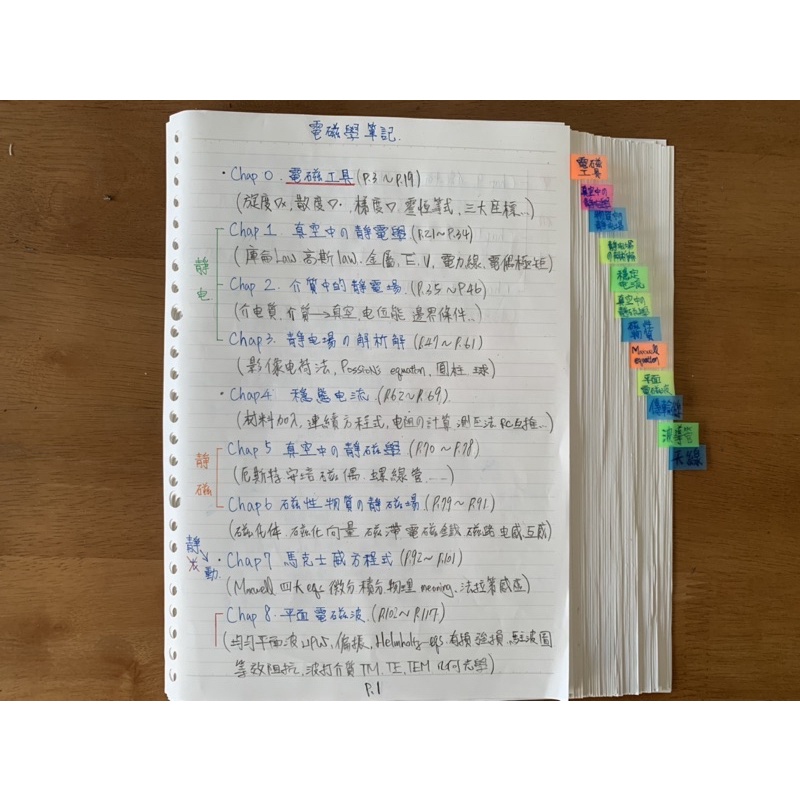 電磁學筆記.
・Chap 0. 電磁工具 (P.3～P.19)
(旋度∇x, 散度∇·, 梯度∇, 零恆等式, 三大座標...)
Chap 1. 真空中の静電學 (P.21～P.34)
(庫侖Law 高斯law. 金屬, E, V, 電力線、電偶極矩)
静电
Chap 2. 介質中的静電場 (P.35～P.46)
(介电質, 介質→真空, 电位能 邊界條件..)
Chap 3. 静电場の解析解 (P.47～P.61)
(影像电荷法, equation, 圓柱 球)
・Chap4 穩態电流 (P.62～P.69).
(材料加入, 連續方程式, 电阻の計算 測互法 RC互推...)
Chap 5 真空中の静磁學 (P.70～P.78)
(厄斯特 安培 磁偶. 螺線管......)
静磁
Chap 6 磁性物質の静磁場 (P.79～P.91)
(磁化体 磁化向量 磁滯 電磁鐵 磁路 电感互感)
静→動
・Chap 7 馬克士威方程式 (P.92～P.101)
(Maxwell 四大eqs 微分 積分. 物理 meaning. 法拉第感应)
Chap 8. 平面電磁波. (P.102～P.117)
(均勻平面波 UPW, 偏振, Helmholtz eqs 有損 强損, 駐波圖
等效阻抗, 波打介質 TM, TE, TEM 几何光學)
P.1
電磁工具
真空中の静电學
物質中の静电場
静电場の解析解
穩定电流
真空中の静磁學
磁性物質
Maxwell equation
平面電磁波
傳輸線
波導管
天線